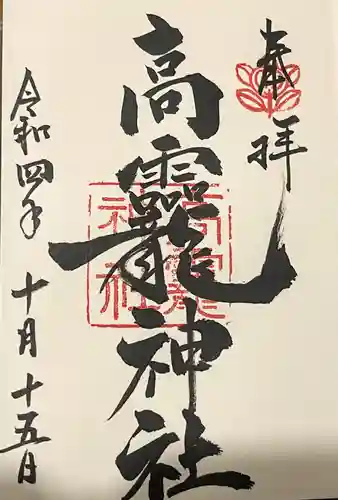 奉拝
高龗神社
高龗神社
令和四年 十月十五日